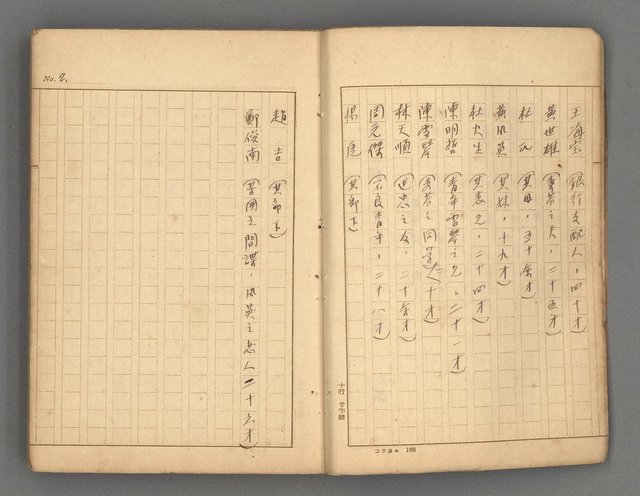 王海宝（銀行支配人，四十才）
黄世雄（秀若之夫，二十五才）
杜氏（其母，五十余才）
黄鳳英（其妹，十九才）
杜火生（其表兄，二十四才）
陳明哲（青年雪琴之兄，二十一才）
陳雪琴（秀若之同学，二十才）
林天順（世忠之友，二十余才）
周元傑（不良青年，二十八才）
楊虎（其部下）
十行 廿字詰
コクヨ 168
No. 2,
趙吉（其部下）
鄭俊南（某國之間諜，鳳英之恋人二十六才）